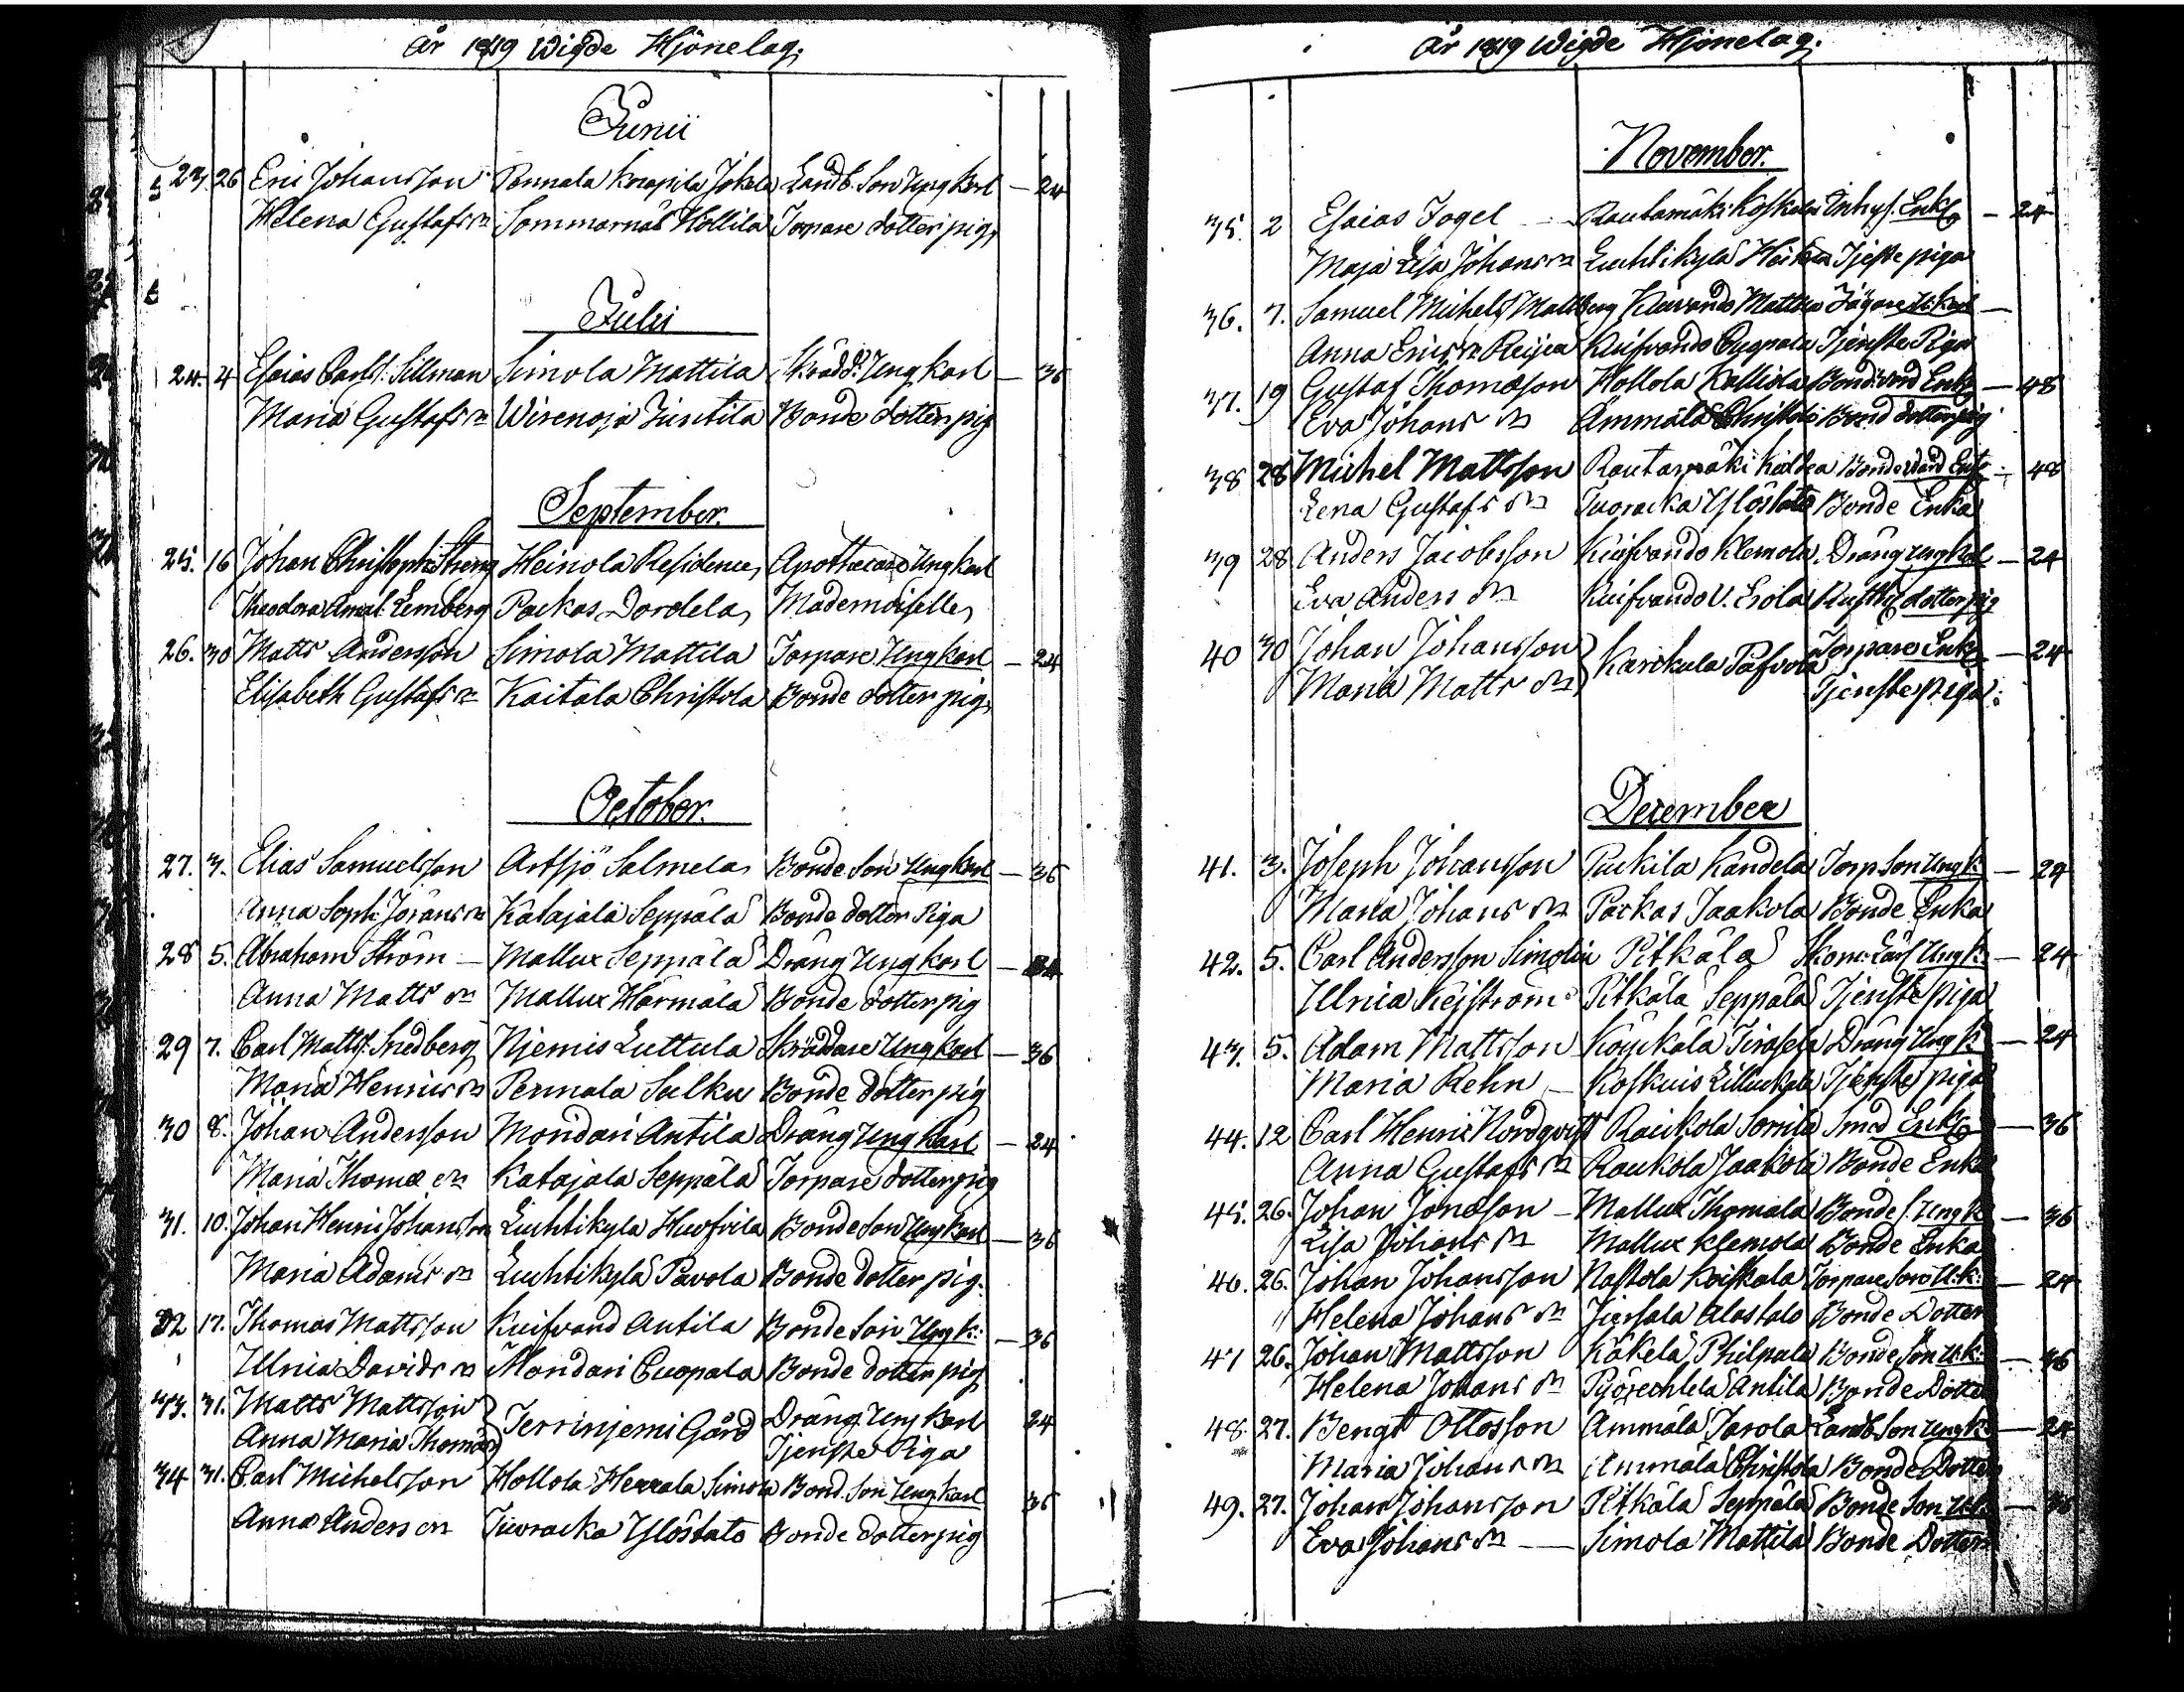 År 1819 Wigde Hjonelag.
Junii
23. 26 Eric Johansson Pennala Knapila Jokela Landb. Son Ungkarl — 24
Helena Gustafs dr Sommarnäs Hollila Torpare dotter pig.
Julii
24. 4 Esaias Carls. Sillman Simola Mattila Skrädd. Ung karl — 36
Maria Gustafs dr Wirenoja Juntila Bonde dotter pig
September.
25. 16 Johan Christoph. Streng Heinola Residence, Apothecare Ungkarl
Theodora Amal. Lemberg Packas Dordela, Mademoiselle,
26. 30 Matts Andersson Simola Mattila Torpare Ungkarl — 24
Elisabeth Gustafs dr Kaitala Christola Bonde dotter pig,
October.
27. 3. Elias Samuelsson Artsjö Salmela Bonde Son Ungkarl — 36
Anna Soph. Jörans dr Katajala Seppälä Bonde dotter Piga
28 5. Abraham Ström — Mallux Seppälä Dräng Ung karl — 24
Anna Matts dr Mallux Härmälä Bonde dotter pig
29 7. Carl Matts. Snedberg Njemis Luttula Skräddare Ungkarl — 36
Maria Henrics dr Pennala Sulku Bonde dotter pig
30 8. Johan Andersson Mondari Antila Dräng Ung karl — 24
Maria Thomæ dr Katajala Seppälä Torpare dotter pig
31. 10. Johan Henric Johansson Luhtikylä Huofvila Bonde Son Ungkarl — 36
Maria Adams dr Luhtikylä Pavola Bonde dotter pig.
32 17. Thomas Mattsson Kuifvand Antila Bonde Son Ung k: — 36
Ulrica Davids dr Mondari Cuopala Bonde dotter pig
33. 31. Matts Mattsson } Terrinjemi Gård Dräng Ung karl 24
Anna Maria Thomæ dr Tjenste Piga
34 31. Carl Michelsson Hollola Herrala Simola Bond. Son Ung karl 36
Anna Anders dr Tuoracka Ylöstalo Bonde dotter pig
År 1819 Wigde Hjonelag.
November.
35. 2 Esaias Fogel — Rautamäki Koskela Inhys. Enkl. — 24
Maja Lisa Johans dr Luhtikylä Tjenste piga
36. 7. Samuel Michels. Mattberg Kuivando Mattila Jägare U. karl —
Anna Erics dr Kuifvando Cuopala Tjenste Piga
37. 19 Gustaf Thomasson Hollola Kalliola Bonde Enkl. — 48
Eva Johans dr Ammälä Christola Bond dotter pig
38 28 Michel Mattsson Rautamäki Bonde Enkl. — 48
Lena Gustafs dr Tuoracka Ylöstalo Bonde Enka
39 28 Anders Jacobsson Kuifvando Klemola Dräng ungkarl — 24
Eva Anders dr Kuifvando Rusth. dotter pig
40 30 Johan Johansson } Karckula Pafvola Torpare Enkl. — 24
Maria Matts dr Tjenste piga.
December
41. 3. Joseph Johansson Puckila Kandela Torp. Son Ung k. — 24
Maria Johans dr Packas Jaakola Bonde Enka
42. 5. Carl Andersson Simolin Pitkälä Skom: Lärl. Ung k. — 24
Ulrica Kejström Pitkälä Seppälä Tjenste piga
43. 5. Adam Mattsson Dräng Ung k. — 24
Maria Rehn — Koskuis Tjenste piga
44. 12 Carl Henric Nordqvist Raukola Sorrila Smed Enkl. — 36
Anna Gustafs dr Raukola Jaakola Bonde Enka
45. 26. Johan Jonasson — Mallux Thomala Bonde s. Ung k. — 36
Lisa Johans dr Mallux Klemola Bonde Enka
46. 26. Johan Johansson Nastola Koiskala Torpare Son U: k: — 24
Helena Johans dr Alastalo Bonde Dotter
47 26. Johan Mattsson Käkelä Philpala Bonde Son U: k: — 36
Helena Johans dr Antila Bonde Dotter
48. 27. Bengt Ottosson Ammälä Jarola Landb. Son Ung k. — 24
Maria Johans dr Ammälä Christola Bonde Dotter
49. 27. Johan Johansson Pitkälä Seppälä Bonde Son U:k. — 36
Eva Johans dr — Simola Mattila Bonde Dotter